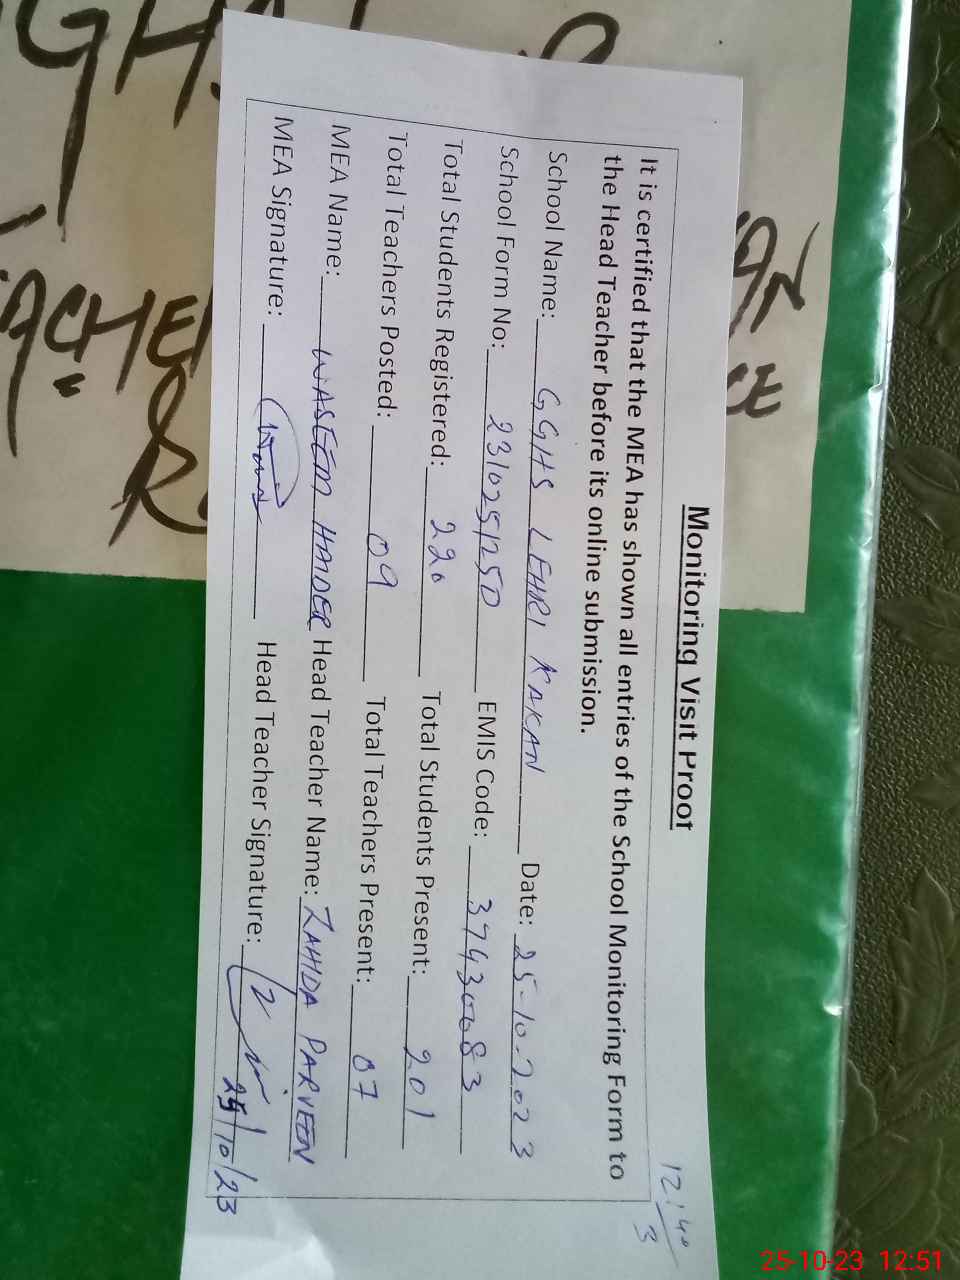 Monitoring Visit Proof
It is certified that the MEA has shown all entries of the School Monitoring Form to
the Head Teacher before its online submission.
School Name: GGHS LEHRI KAKAN Date: 25-10-2023
School Form No: 2310251250 EMIS Code: 37430083
Total Students Registered: 220 Total Students Present: 201
Total Teachers Posted: 09 Total Teachers Present: 07
MEA Name: WASEEM HAIDER Head Teacher Name: ZAHIDA PARVEEN
MEA Signature: Head Teacher Signature:
25/10/23
12:40
3
25-10-23 12:51